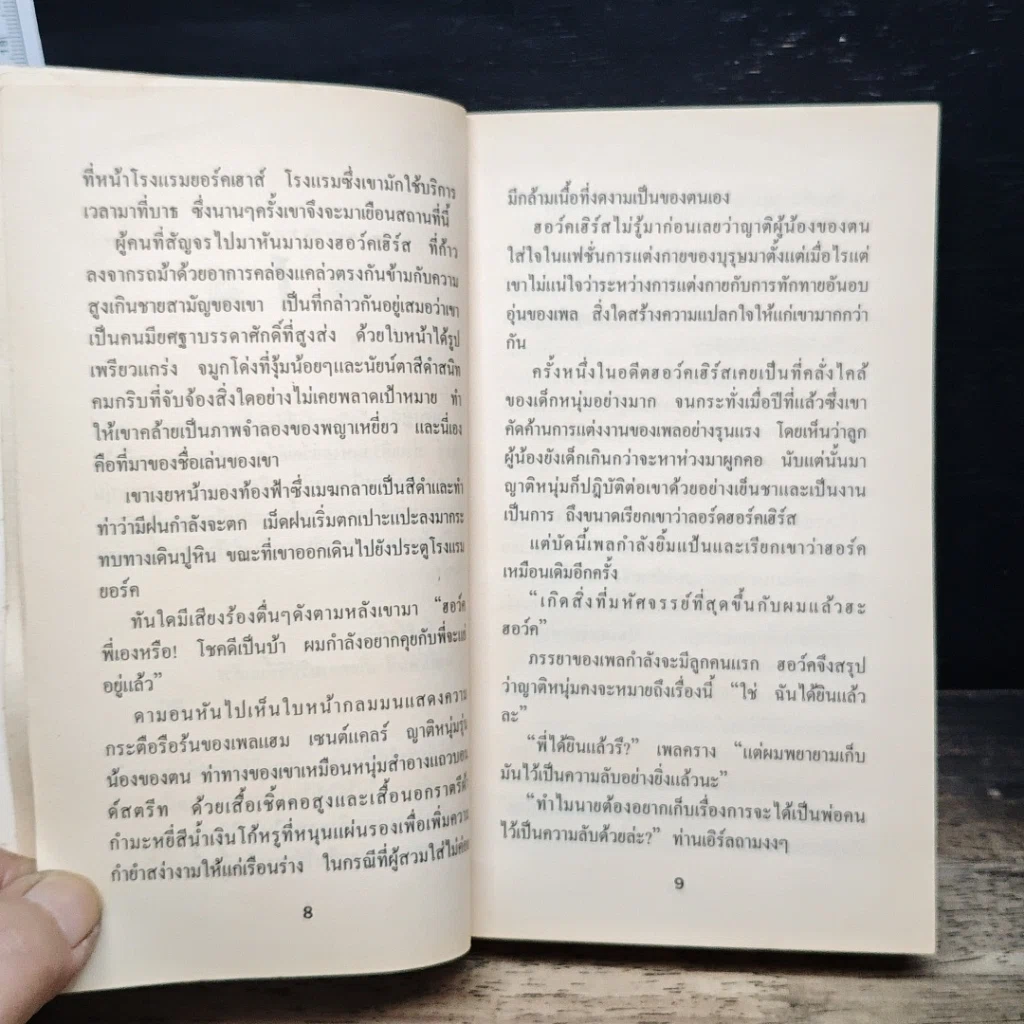 ที่หน้าโรงแรมยอร์คเฮาส์ โรงแรมซึ่งเขามักใช้บริการ
เวลามาที่บาธ ซึ่งนานๆครั้งเขาจึงจะมาเยือนสถานที่นี้
ผู้คนที่สัญจรไปมาหันมามองฮอว์คเฮิร์ส ที่ก้าว
ลงจากรถม้าด้วยอาการคล่องแคล่วตรงกันข้ามกับความ
สูงเกินชายสามัญของเขา เป็นที่กล่าวกันอยู่เสมอว่าเขา
เป็นคนมียศฐาบรรดาศักดิ์ที่สูงส่ง ด้วยใบหน้าได้รูป
เพรียวแกร่ง จมูกโด่งที่งุ้มน้อยๆและนัยน์ตาสีดำสนิท
คมกริบที่จับจ้องสิ่งใดอย่างไม่เคยพลาดเป้าหมาย ทำ
ให้เขาคล้ายเป็นภาพจำลองของพญาเหยี่ยว และนี่เอง
คือที่มาของชื่อเล่นของเขา
เขาเงยหน้ามองท้องฟ้าซึ่งเมฆกลายเป็นสีดำและทำ
ท่าว่ามีฝนกำลังจะตก เม็ดฝนเริ่มตกเปาะแปะลงมากระ
ทบทางเดินปูหิน ขณะที่เขาออกเดินไปยังประตูโรงแรม
ยอร์ค
ทันใดมีเสียงร้องตื่นๆดังตามหลังเขามา “ฮอว์ค
พี่เองหรือ! โชคดีเป็นบ้า ผมกำลังอยากคุยกับพี่จะแย่
อยู่แล้ว”
ดามอนหันไปเห็นใบหน้ากลมมนแสดงความ
กระตือรือร้นของเพลแฮม เซนต์แคลร์ ญาติหนุ่มรุ่น
น้องของตน ท่าทางของเขาเหมือนหนุ่มสำอางแถวบอน
ด์สตรีท ด้วยเสื้อเชิ้ตคอสูงและเสื้อนอกราตรีผ้า
กำมะหยี่สีน้ำเงินโก้หรูที่หนุนแผ่นรองเพื่อเพิ่มความ
กำยำสง่างามให้แก่เรือนร่าง ในกรณีที่ผู้สวมใส่ไม่ค่อย
8
มีกล้ามเนื้อที่งดงามเป็นของตนเอง
ฮอว์คเฮิร์สไม่รู้มาก่อนเลยว่าญาติผู้น้องของตน
ใส่ใจในแฟชั่นการแต่งกายของบุรุษมาตั้งแต่เมื่อไรแต่
เขาไม่แน่ใจว่าระหว่างการแต่งกายกับการทักทายอันอบ
อุ่นของเพล สิ่งใดสร้างความแปลกใจให้แก่เขามากกว่า
กัน
ครั้งหนึ่งในอดีตฮอว์คเฮิร์สเคยเป็นที่คลั่งไคล้
ของเด็กหนุ่มอย่างมาก จนกระทั่งเมื่อปีที่แล้วซึ่งเขา
คัดค้านการแต่งงานของเพลอย่างรุนแรง โดยเห็นว่าลูก
ผู้น้องยังเด็กเกินกว่าจะหาห่วงมาผูกคอ นับแต่นั้นมา
ญาติหนุ่มก็ปฏิบัติต่อเขาด้วยอย่างเย็นชาและเป็นงาน
เป็นการ ถึงขนาดเรียกเขาว่าลอร์ดฮอร์คเฮิร์ส
แต่บัดนี้เพลกำลังยิ้มแป้นและเรียกเขาว่าฮอร์ค
เหมือนเดิมอีกครั้ง
“เกิดสิ่งที่มหัศจรรย์ที่สุดขึ้นกับผมแล้วฮะ
ฮอว์ค”
ภรรยาของเพลกำลังจะมีลูกคนแรก ฮอว์คจึงสรุป
ว่าญาติหนุ่มคงจะหมายถึงเรื่องนี้ “ใช่ ฉันได้ยินแล้ว
ละ”
“พี่ได้ยินแล้วรึ?” เพลคราง “แต่ผมพยายามเก็บ
มันไว้เป็นความลับอย่างยิ่งแล้วนะ”
“ทำไมนายต้องอยากเก็บเรื่องการจะได้เป็นพ่อคน
ไว้เป็นความลับด้วยล่ะ?” ท่านเอิร์ลถามงงๆ
9